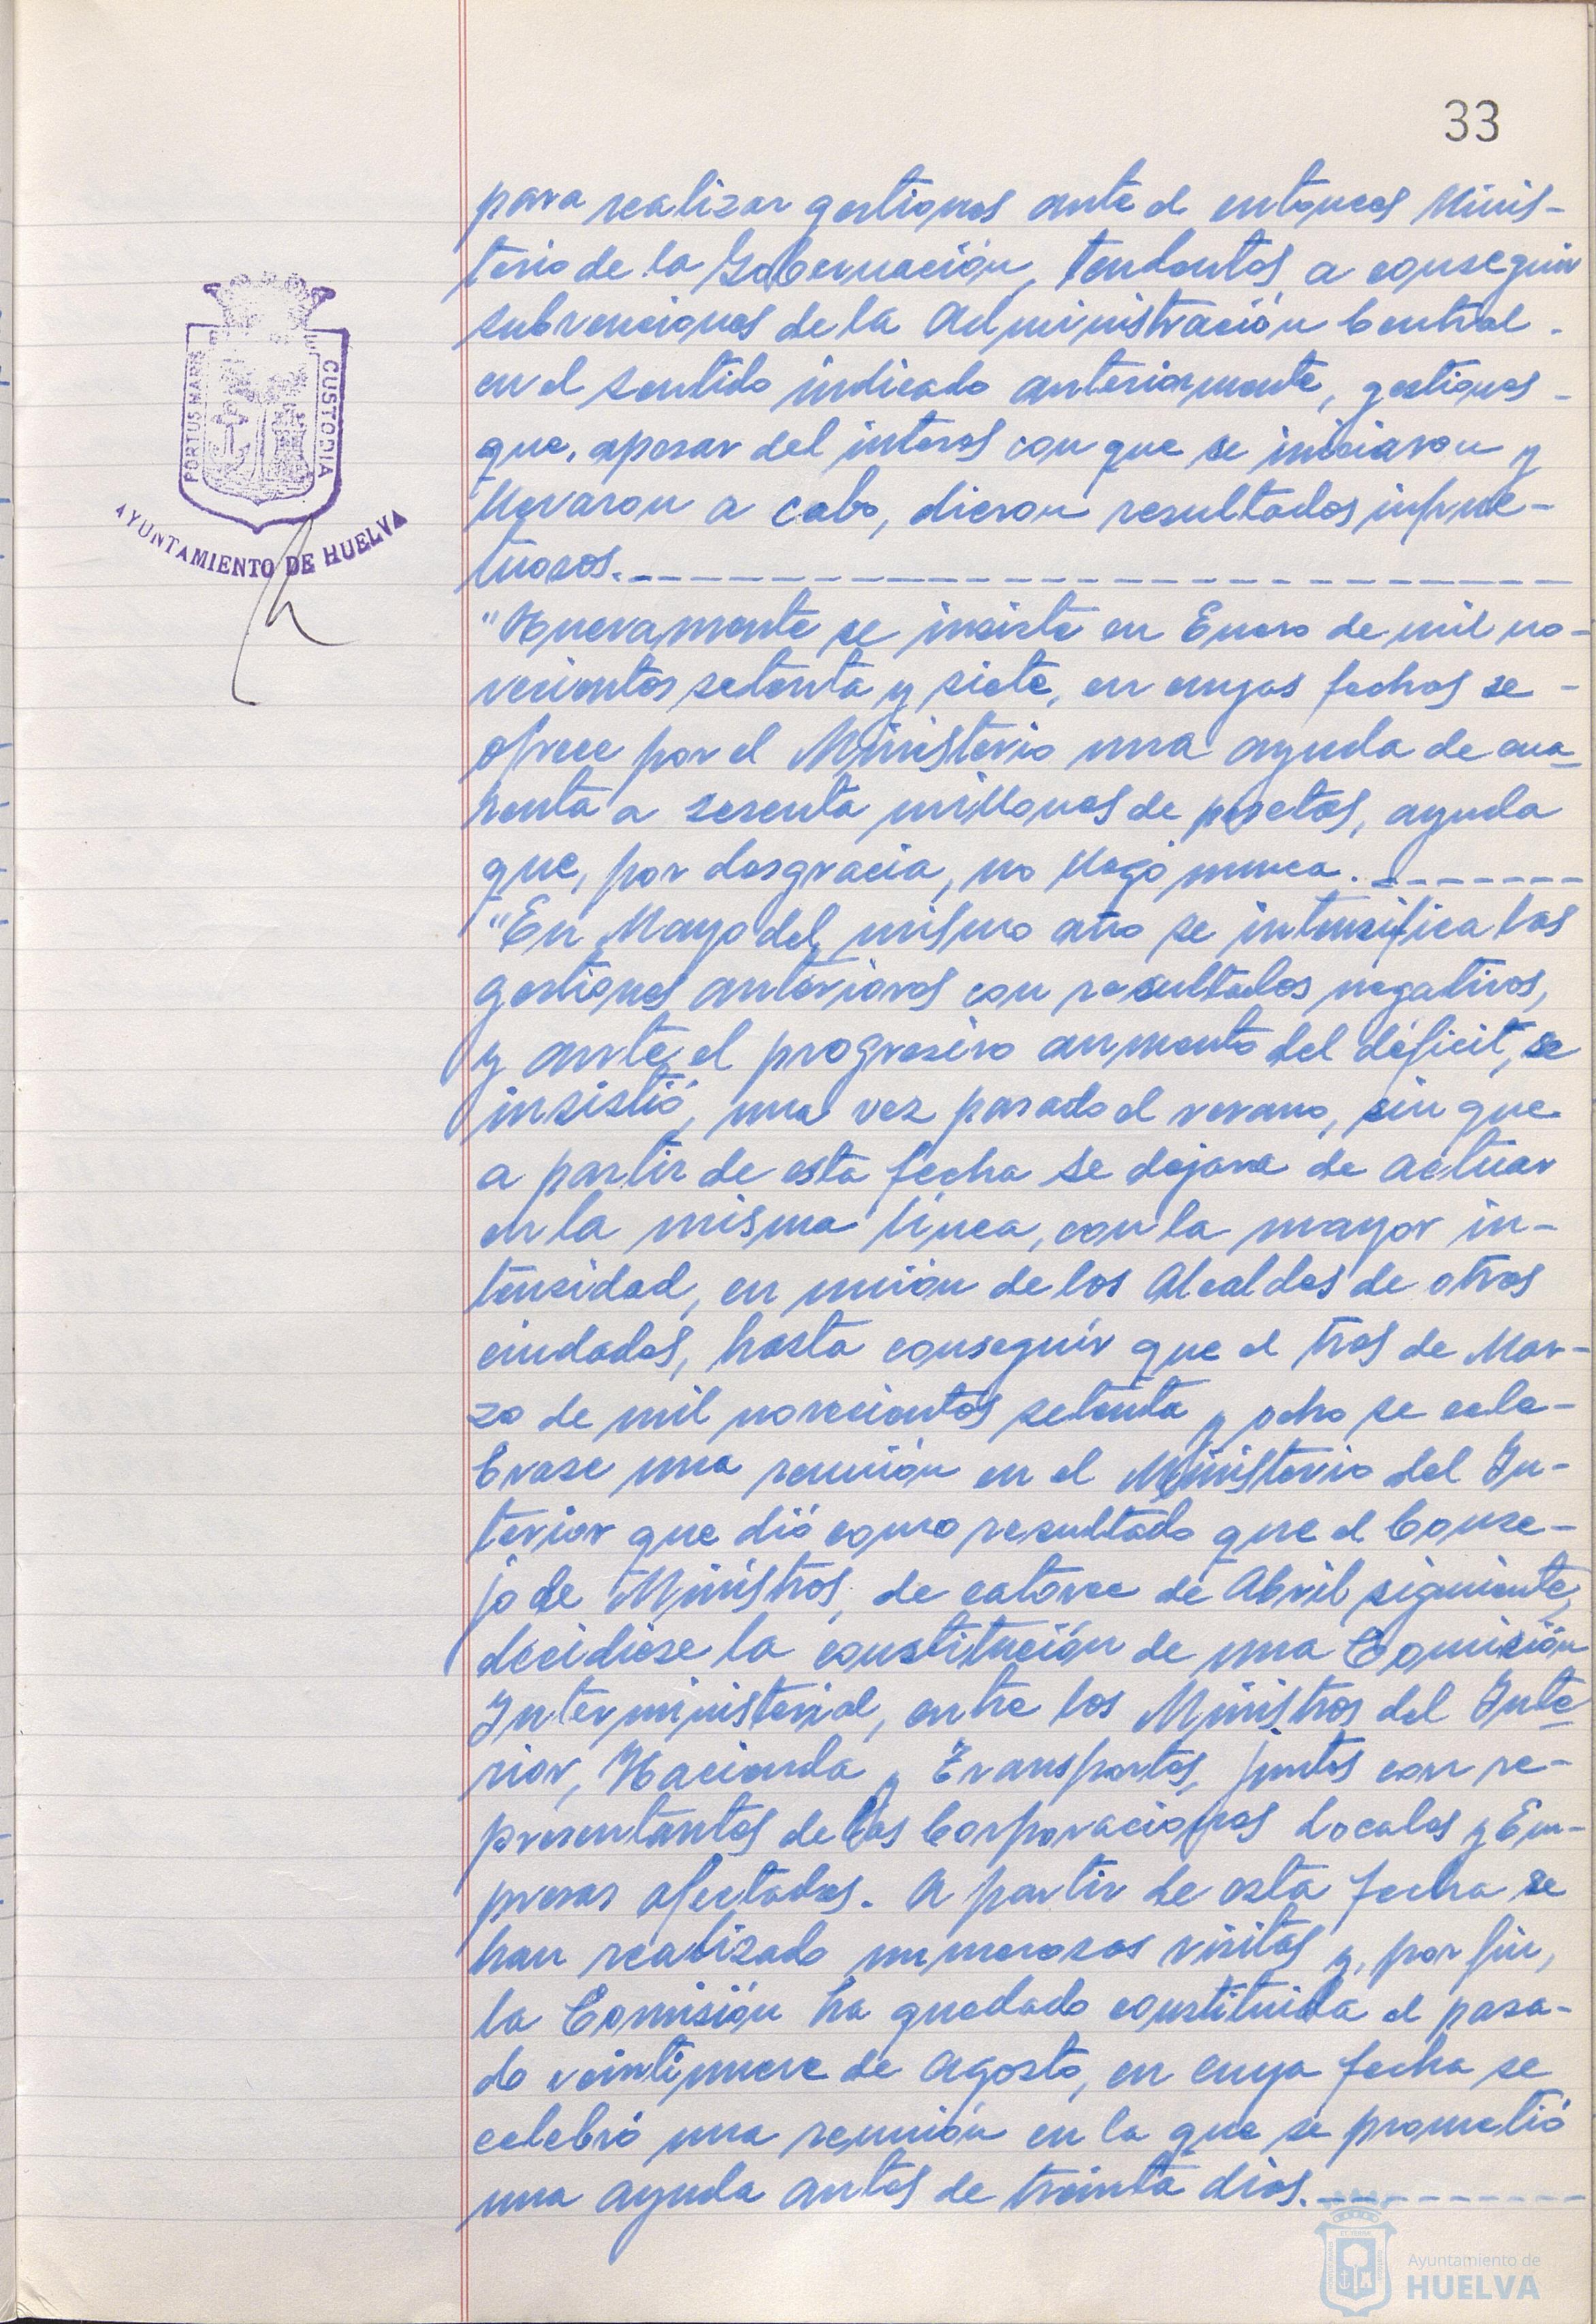 33
para realizar gestiones ante el entonces Minis-
terio de la Gobernación, tendentes a conseguir
subvenciones de la Administración Central -
en el sentido indicado anteriormente, gestiones -
que, apesar del interes con que se iniciaron y
llevaron a cabo, dieron resultados infruc-
tuosos.
"Nuevamente se insiste en Enero de mil no-
vecientos setenta y siete, en cuyas fechas se -
ofrece por el Ministerio una ayuda de cua-
renta a sesenta millones de pesetas, ayuda
que, por desgracia, no llegó nunca.
"En Mayo del mismo año se intensifica las
gestiones anteriores con resultados negativos,
y ante el progresivo aumento del déficit, se
insistió, una vez pasado el verano, sin que
a partir de esta fecha se dejara de actuar
en la misma línea, con la mayor in-
tensidad, en unión de los Alcaldes de otras
ciudades, hasta conseguir que el tres de Mar-
zo de mil novecientos setenta y ocho se cele-
brase una reunión en el Ministerio del In-
terior que dió como resultado que el Conse-
jo de Ministros, de catorce de Abril siguiente,
decidiese la constitución de una Comisión
Interministerial, entre los Ministros del Inte-
rior, Hacienda y Transportes, juntos con re-
presentantes de las Corporaciones Locales y Em-
presas afectadas. A partir de esta fecha se
han realizado numerosas visitas y, por fin,
la Comisión ha quedado constituida el pasa-
do veintinueve de Agosto, en cuya fecha se
celebró una reunión en la que se prometió
una ayuda antes de treinta días.
PORTUS MARIS
CUSTODIA
AYUNTAMIENTO DE HUELVA
Ayuntamiento de
HUELVA